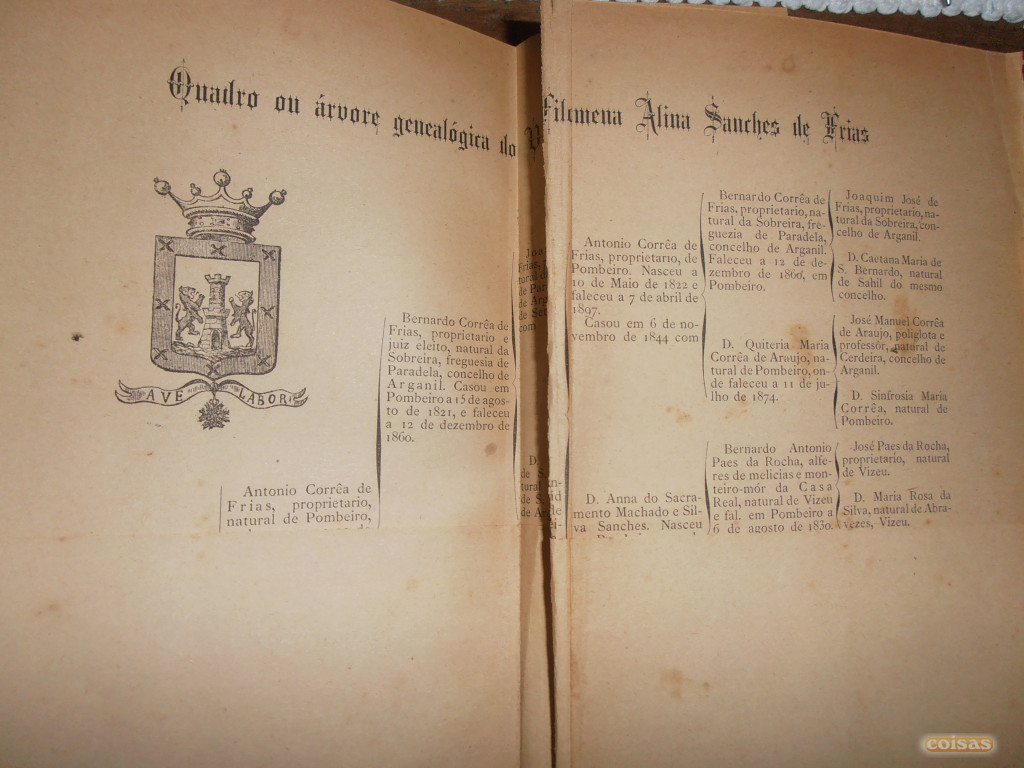 Quadro ou árvore genealógica do
Filomena Alina Sanches de Frias
AVE LABOR
Bernardo Corrêa de
Frias, proprietario e
juiz eleito, natural da
Sobreira, freguesia de
Paradela, concelho de
Arganil. Casou em
Pombeiro a 15 de agos-
to de 1821, e faleceu
a 12 de dezembro de
1860.
Antonio Corrêa de
Frias, proprietario,
natural de Pombeiro,
Antonio Corrêa de
Frias, proprietario, de
Pombeiro. Nasceu a
10 de Maio de 1822 e
faleceu a 7 de abril de
1897.
Casou em 6 de no-
vembro de 1844 com
D. Anna do Sacra-
mento Machado e Sil-
va Sanches. Nasceu
Bernardo Corrêa de
Frias, proprietario, na-
tural da Sobreira, fre-
guezia de Paradela,
concelho de Arganil.
Faleceu a 12 de de-
zembro de 1860, em
Pombeiro.
D. Quiteria Maria
Corrêa de Araujo, na-
tural de Pombeiro, on-
de faleceu a 11 de ju-
lho de 1874.
Bernardo Antonio
Paes da Rocha, alfe-
res de melicias e mon-
teiro-mór da Casa
Real, natural de Vizeu
e fal. em Pombeiro a
6 de agosto de 1830.
Joaquim José de
Frias, proprietario, na-
tural da Sobreira, con-
celho de Arganil.
D. Caetana Maria de
S. Bernardo, natural
de Sahil do mesmo
concelho.
José Manuel Corrêa
de Araujo, poliglota e
professôr, natural de
Cerdeira, concelho de
Arganil.
D. Sinfrosia Maria
Corrêa, natural de
Pombeiro.
José Paes da Rocha,
proprietario, natural
de Vizeu.
D. Maria Rosa da
Silva, natural de Abra-
vezes, Vizeu.
coisas